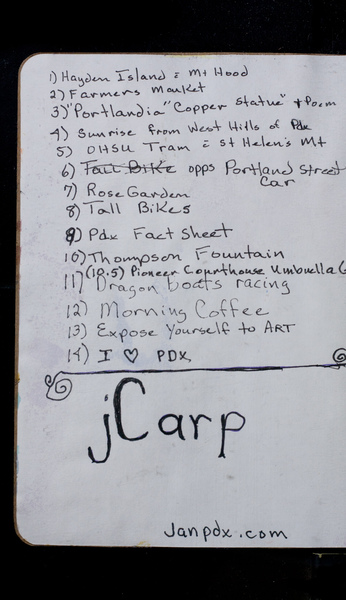 1) Hayden Island & Mt Hood
2) Farmers Market
3) "Portlandia" "Copper Statue" + Poem
4) Sunrise from West Hills of Pdx
5) OHSU Tram & St Helen's Mt
6) Tall Bike opps Portland Street
Car
7) Rose Garden
8) Tall Bikes
9) Pdx Fact Sheet
10) Thompson Fountain
(10.5) Pioneer Courthouse Umbrella
11) Dragon boats racing
12) Morning Coffee
13) Expose Yourself to ART
14) I ♡ PDX,
jCarp
Janpdx.com